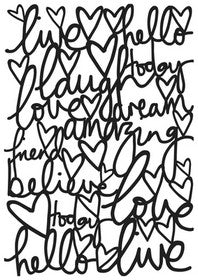 live hello
laugh today
love dream
amazing
friend
believe
today love
hello live